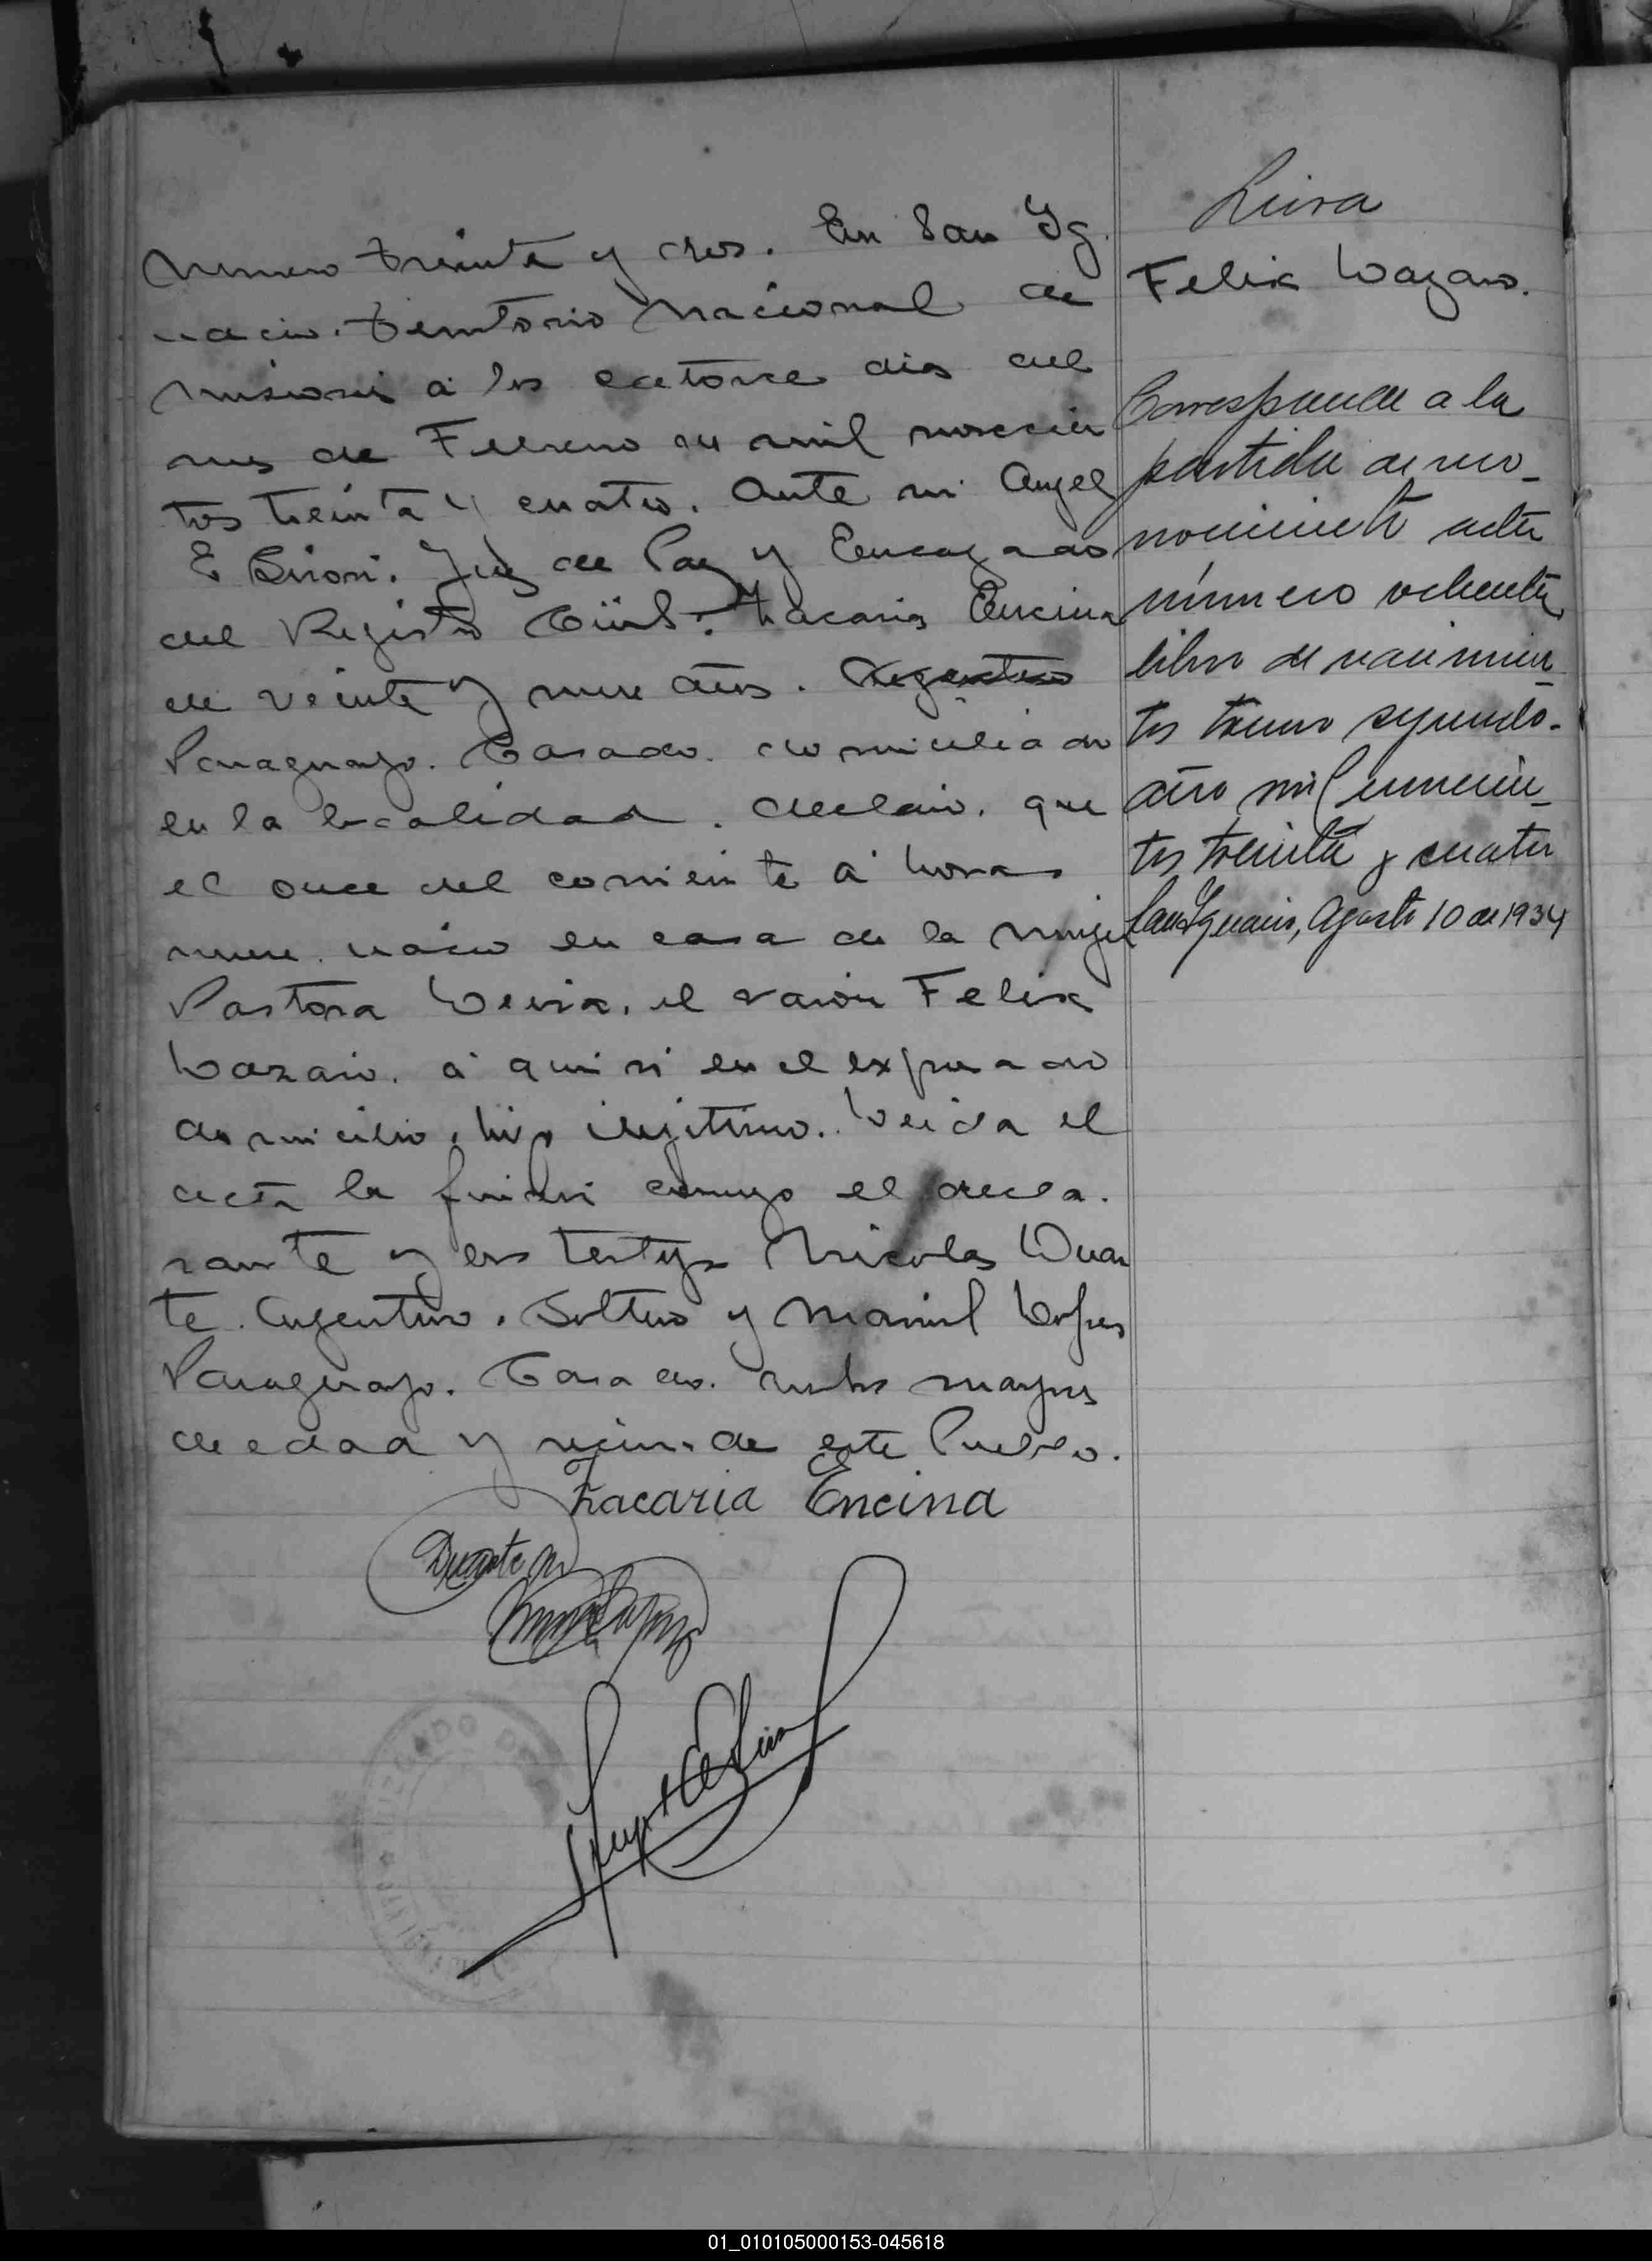 Numero treinta y dos. En San Yg.
nacio. territorio Nacional de
Misiones á los catorce dias del
mes de Febrero de mil novecien
tos treinta y cuatro. Ante mi Angel
E. Juez de Paz y Encargado
del Registro Civil. Zacarias Encina
de veinte y nueve años. Argentino
Paraguayo. Casado. domiciliado
en la localidad. declaró. que
el once del corriente á horas
nueve. nació en casa de la mujer
Pastora Leiva. el varón Felix
Lazaro. á quien ví en el expresado
domicilio, hijo ilegitimo. Leida el
acta la firmaron conmigo el decla.
rante y los testigos Nicolas Duar
te. Argentino. Soltero y Manuel Lopes
Paraguayo. Casado. ambos mayores
de edad y vecinos de este Pueblo.
Zacaria Encina
Duarte N
Manuel Lopez
Leiva
Felix Lazaro.
Corresponde a la
partida de reco_
nocimiento acta
número ochenta
libro de nacimien_
tos tomo segundo.
año mil novecien_
tos treinta y cuatro
San Ygnacio, Agosto 10 de 1934
JUZGADO DE
SAN IGNACIO
01_010105000153-045618